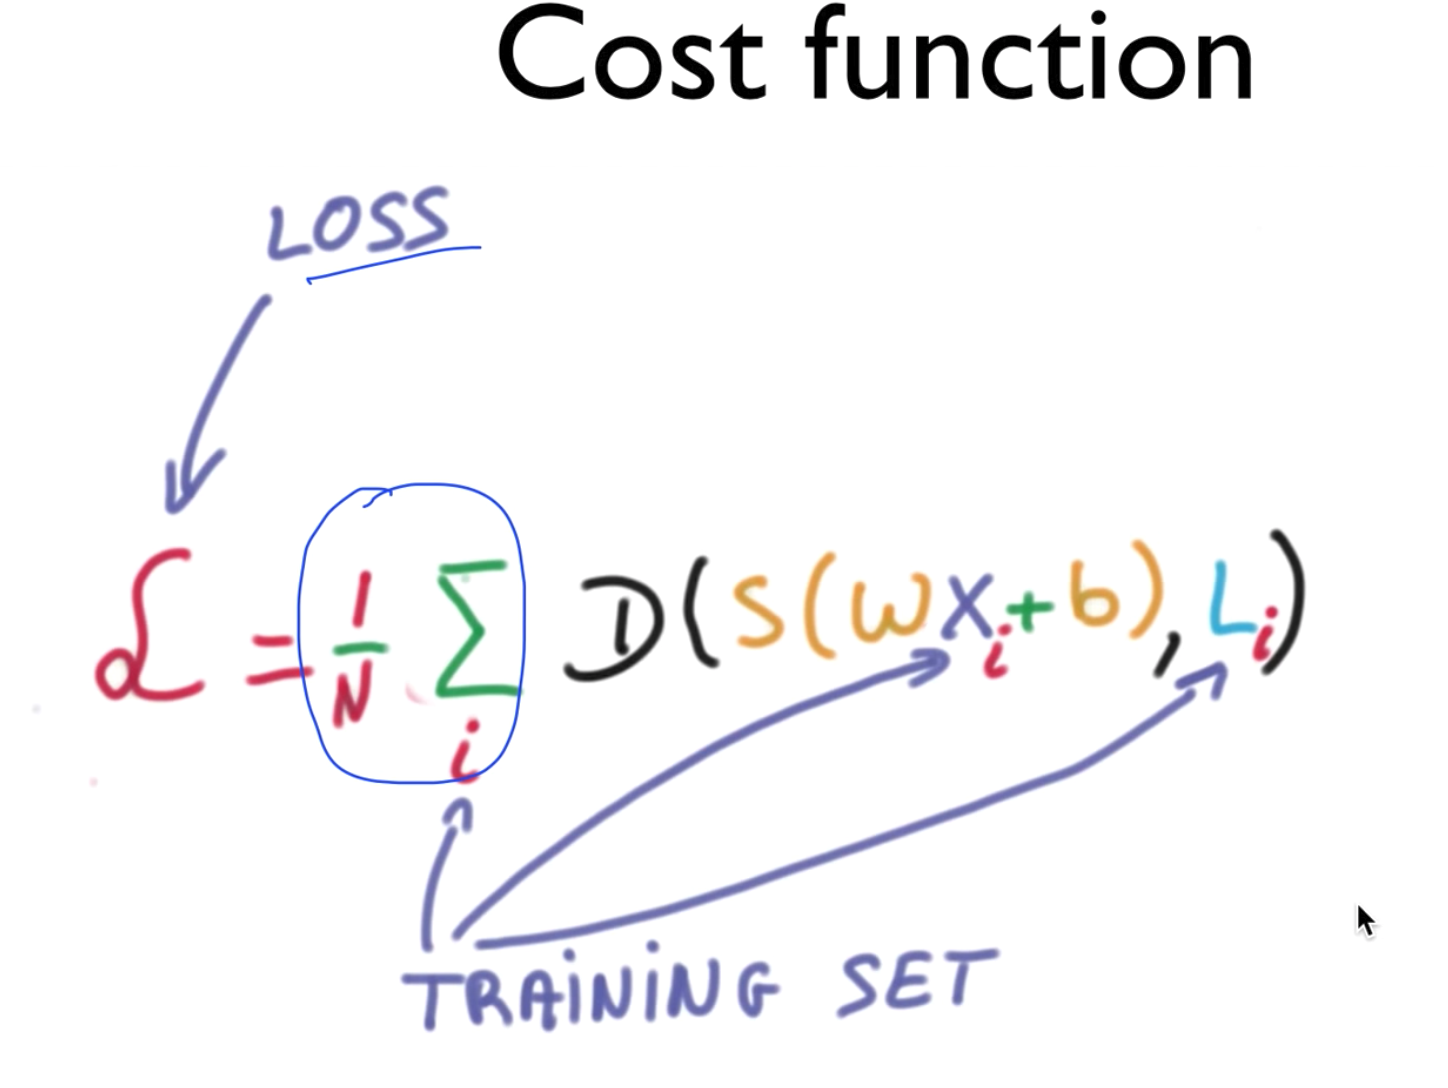 Cost function
LOSS
ℒ = 1/N Σ_i D(S(WX_i + b), L_i)
TRAiNiNG SET